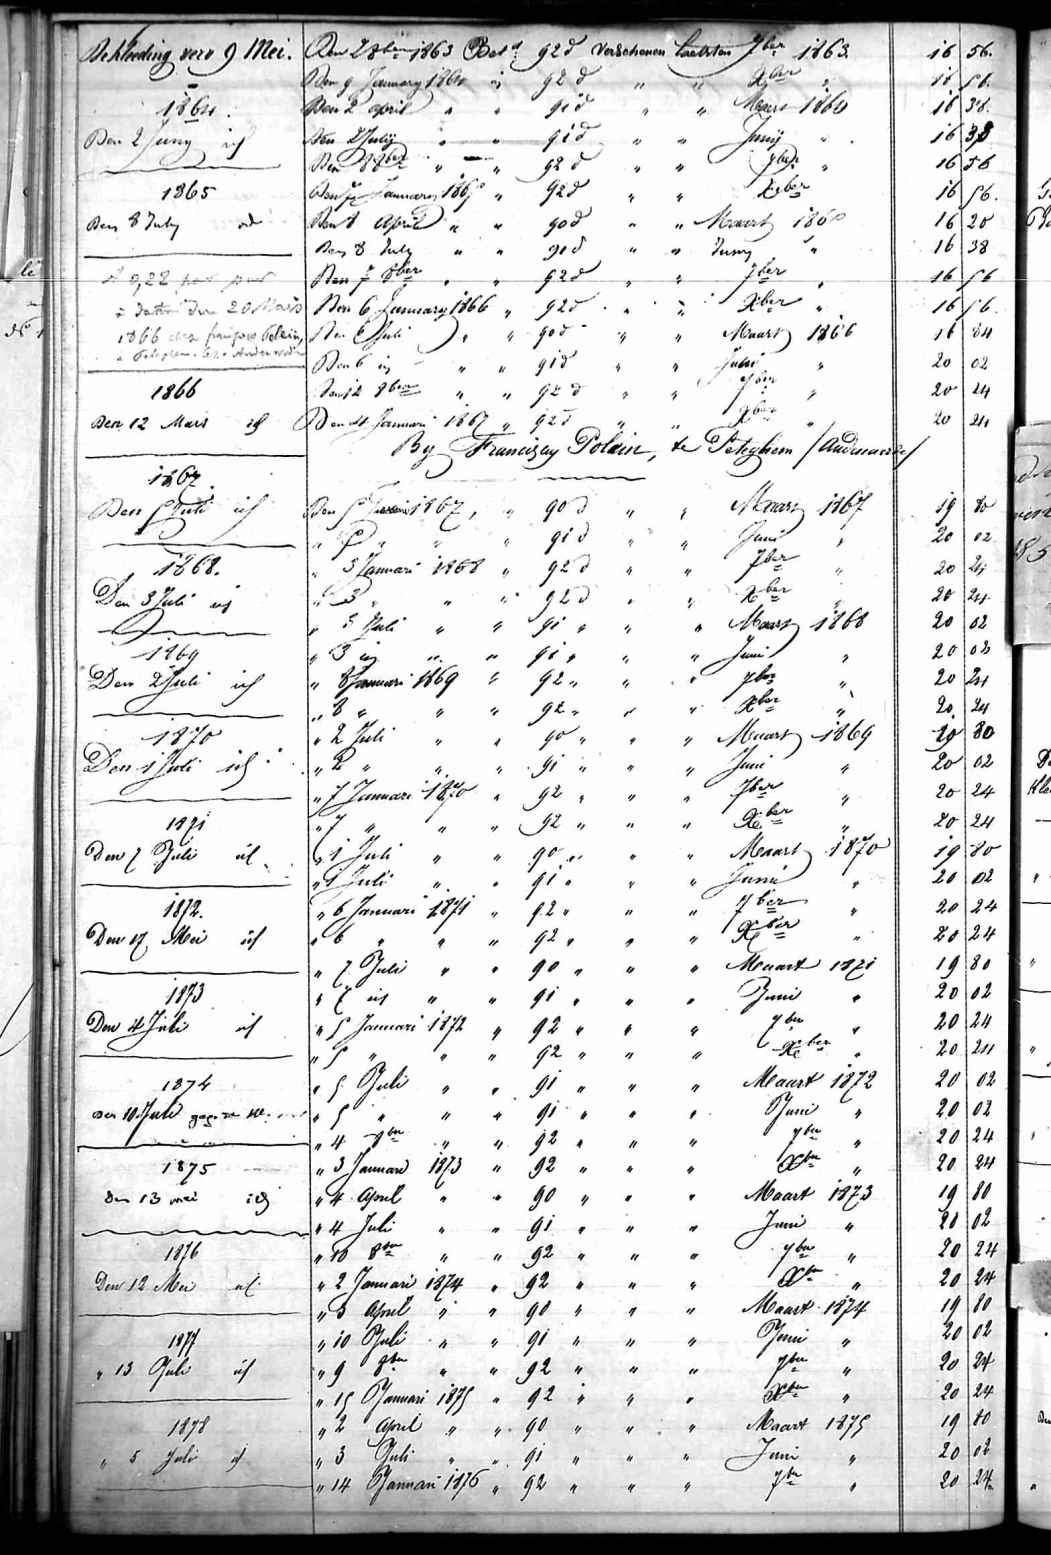 Bekleeding vero 9 Mei. Den 2 8ber 1863 Betd 92 d verschenen laetsten 7ber 1863. 16 56.
Den 9 January 1864 " 92 d " " Xber " 16 56
1864. Den 2 april " " 91 d " " Maart 1864 16 38
Den 2 Juny id Den 2 July " " 91 d " " Juny " 16 38
Den 8ber " " 92 d " " 7ber " 16 56
1865 Den January 1865 " 92 d " " Xber 16 56.
Den 8 July id Den 8 April " " 90 d " " Maart 186 16 20
Den 8 July " " 91 d " " Juny " 16 38
Den 7 8ber " " 92 d " " 7ber " 16 56
à 0,22 par
à dater den 20 Mars Den 6 January 1866 " 92 d " " Xber " 16 56.
1866 Den 6 Juli " " 90 d " " Maart 1866 16 84
Den 6 id " " 91 d " " Juni " 20 02
1866 Den 12 8ber " " 92 d " " 7ber 20 24
Den 12 Mars id Den 4 Januari 1867 " 92 d " " Xber " 20 24
By Franciscus Polain, te Peteghem / Audenaerde /
1867.
Den 5 Juli id Den 5 1867, " 90 d " " Maart 1867 19 80
" 5 " " " 91 d " " Juni " 20 02
1868. " 3 Januari 1868 " 92 d " " 7ber " 20 24
Den 3 Juli id " 3 " " " 92 d " " Xber " 20 24
" 3 Juli " " 91 " " " Maart 1868 20 02
1869 " 3 id " " 91 " " " Juni " 20 02
Den 2 Juli id " 8 Januari 1869 " 92 " " " 7ber " 20 24
" 8 " " " 92 " " " Xber " 20 24
1870 " 2 Juli " " 90 " " " Maart 1869 19 80
Den 1 Juli id " 2 " " " 91 " " " Juni " 20 02
" 7 Januari 1870 " 92 " " " 7ber " 20 24
1871 " 7 " " " 92 " " " Xber " 20 24
Den 7 Juli id " 1 Juli " " 90 " " " Maart 1870 19 80
" 1 Juli " " 91 " " " Junii " 20 02
1872. " 6 Januari 1871 " 92 " " " 7ber " 20 24
Den 17 Mei id " 6 " " " 92 " " " Xber " 20 24
" 7 Juli " " 90 " " " Maart 1871 19 80
1873 " 7 id " " 91 " " " Juni " 20 02
Den 4 Juli id " 5 Januari 1872 " 92 " " " 7ber " 20 24
" 5 " " " 92 " " " Xber " 20 24
1874 " 5 Juli " " 91 " " " Maart 1872 20 02
Den 10 Juli " 5 " " " 91 " " " Juni " 20 02
" 4 8ber " " 92 " " " 7ber " 20 24
1875 " 3 Januari 1873 " 92 " " " Xber " 20 24
Den 13 mei id " 4 April " " 90 " " " Maart 1873 19 80
" 4 Juli " " 91 " " " Juni " 20 02
1876 " 10 8ber " " 92 " " " 7ber " 20 24
Den 12 Mei id " 2 Januari 1874 " 92 " " " Xber " 20 24
" 3 April " " 90 " " " Maart 1874 19 80
1877 " 10 Juli " " 91 " " " Juni " 20 02
" 13 Juli id " 9 8ber " " 92 " " " 7ber " 20 24
" 15 Januari 1875 " 92 " " " Xber " 20 24
1878 " 2 April " " 90 " " " Maart 1875 19 80
" 5 Juli id " 3 Juli " " 91 " " " Juni " 20 02
" 14 Januari 1876 " 92 " " " 7ber " 20 24